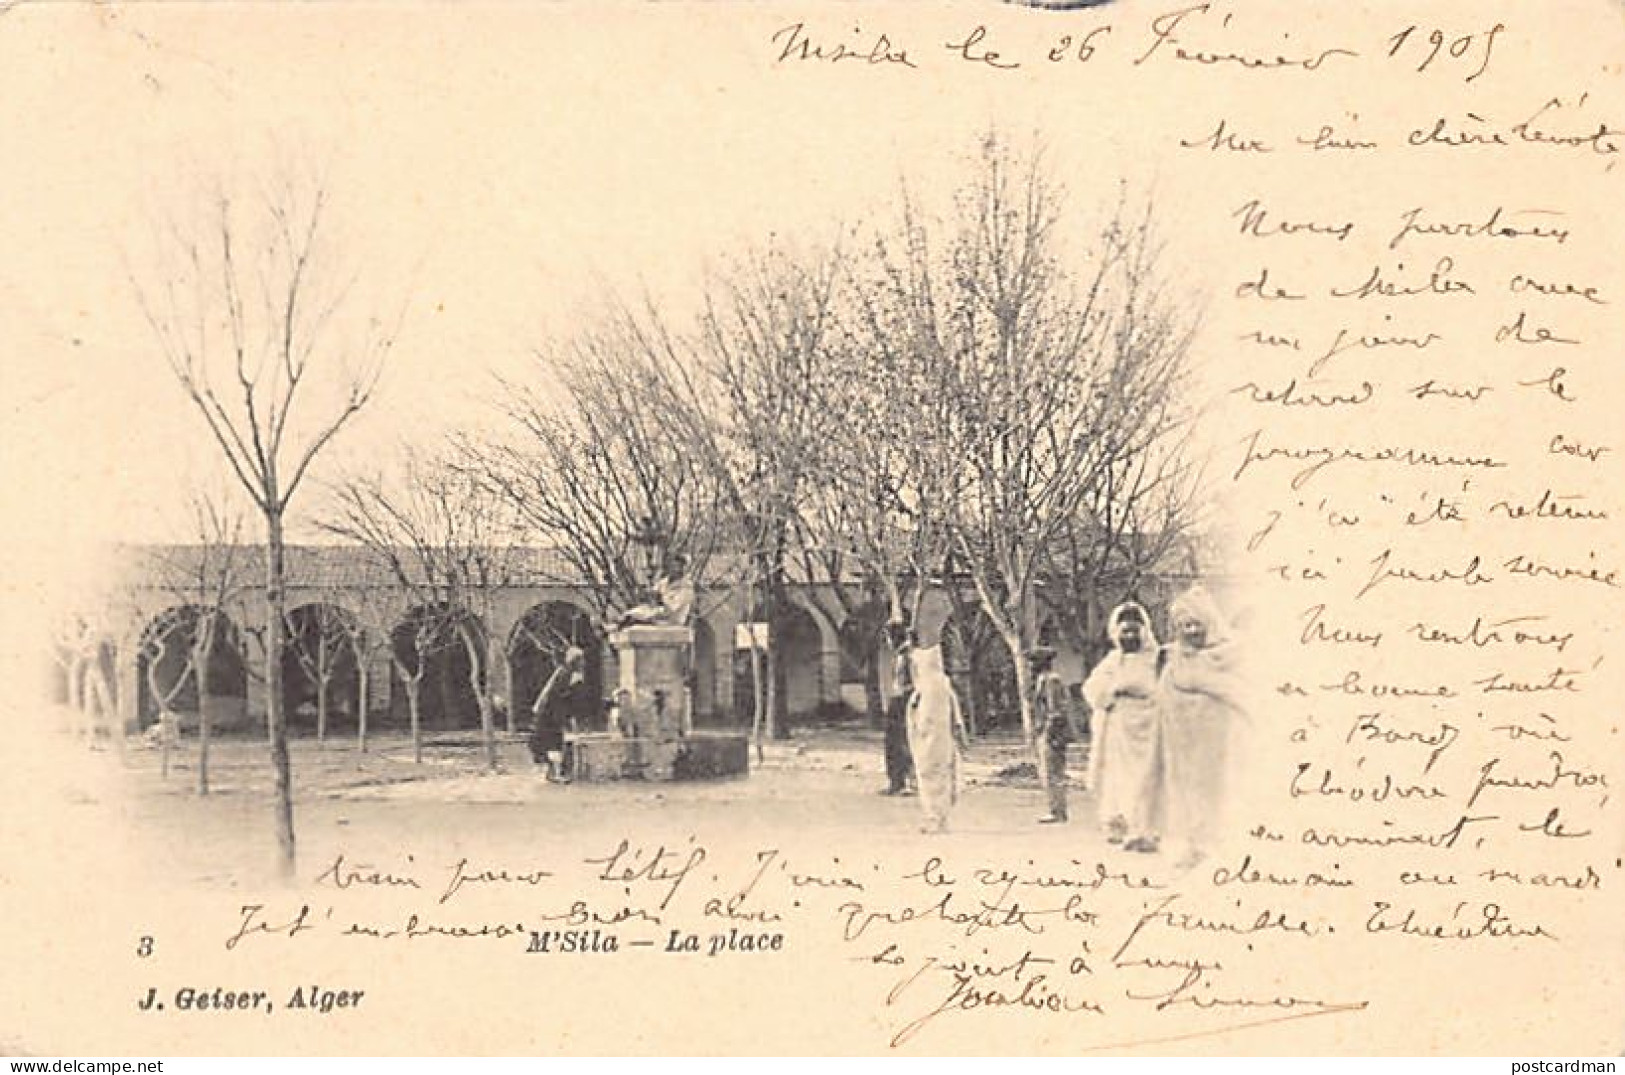 Msila le 26 Février 1905
Ma bien chère
Nous partons
de Msila avec
un jour de
retard sur le
programme car
j'ai été retenu
ici par le service
Nous rentrons
en bonne santé
à Bordj où
Théodore prendra,
en arrivant, le
train pour Sétif. J'irai le rejoindre demain ou mardi
Je t'embrasse bien ainsi que toute la famille. Théodore
se joint à moi
3
M'Sila — La place
J. Geiser, Alger
postcardman